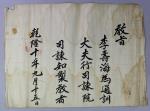 敎旨
李壽海爲通訓
大夫行司諫院
司諫知製敎者
乾隆十年九月十五日